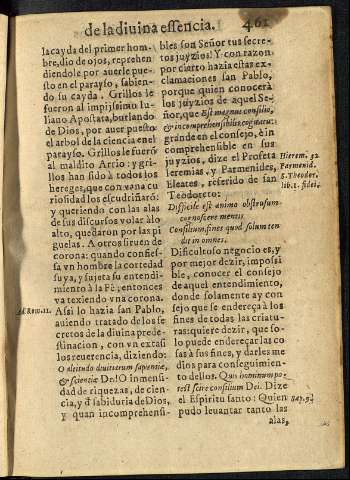 de la diuina essencia. 461
la cayda del primer hom-
bre, dio de ojos, reprehen
diendole por auerle pues-
to en el parayso, sabien-
do su cayda. Grillos le
fueron al impijssimo Iu-
liano Apostata, burlando
de Dios, por auer puesto
el arbol de la ciencia en el
parayso. Grillos le fuerõ
al maldito Arrio: y gri-
llos han sido à todos los
hereges, que con vana cu
riosidad los escudriñarõ:
y queriendo con las alas
de sus discursos volar àlo
alto, quedaron por las pi
guelas. A otros siruen de
corona: quando confies-
sa vn hombre la cortedad
suya, y sujeta su entendi-
miento à la Fè, entonces
va texiendo vna corona.
Ad Rom. 11.
Assi lo hazia san Pablo,
auiendo tratado de los se
cretos de la diuina prede-
stinacion, con vn extasi
los reuerencia, diziendo:
O altitudo diuitiarum sapientiæ,
& scientiæ Dei! O inmensi-
dad de riquezas, de cien-
cia, y d̃ sabiduria de Dios,
y quan incomprehensi-
bles son Señor tus secre-
tos juyzios! Y con razon
por cierto hazia estas ex-
clamaciones san Pablo,
porque quien conocerà
los juyzios de aquel Se-
ñor, que Est magnus consilio,
& incomprehensibilis cogitatu:
grande en el consejo, è in
comprehensible en sus
juyzios, dize el Profeta
Hierem. 32.
Ieremias, y Parmenides,
Parmenid.
Eleates, referido de san
S. Theodor.
Teodoreto:
lib. 1. fidei.
Difficile est animo obstrusum
cornoscere mentis
Consilium, fines quod solum ten
dit in omnes.
Dificultoso negocio es, y
por mejor dezir, imposi
ble, conocer el consejo
de aquel entendimiento,
donde solamente ay con
sejo que se endereça à los
fines de todas las criatu-
ras: quiere dezir, que so-
lo puede endereçar las co
sas à sus fines, y darles me
dios para conseguimien-
to dellos. Quis hominum po-
test scire consilium Dei. Dize
el Espiritu santo: Quien
Sap. 9.
pudo leuantar tanto las
alas,